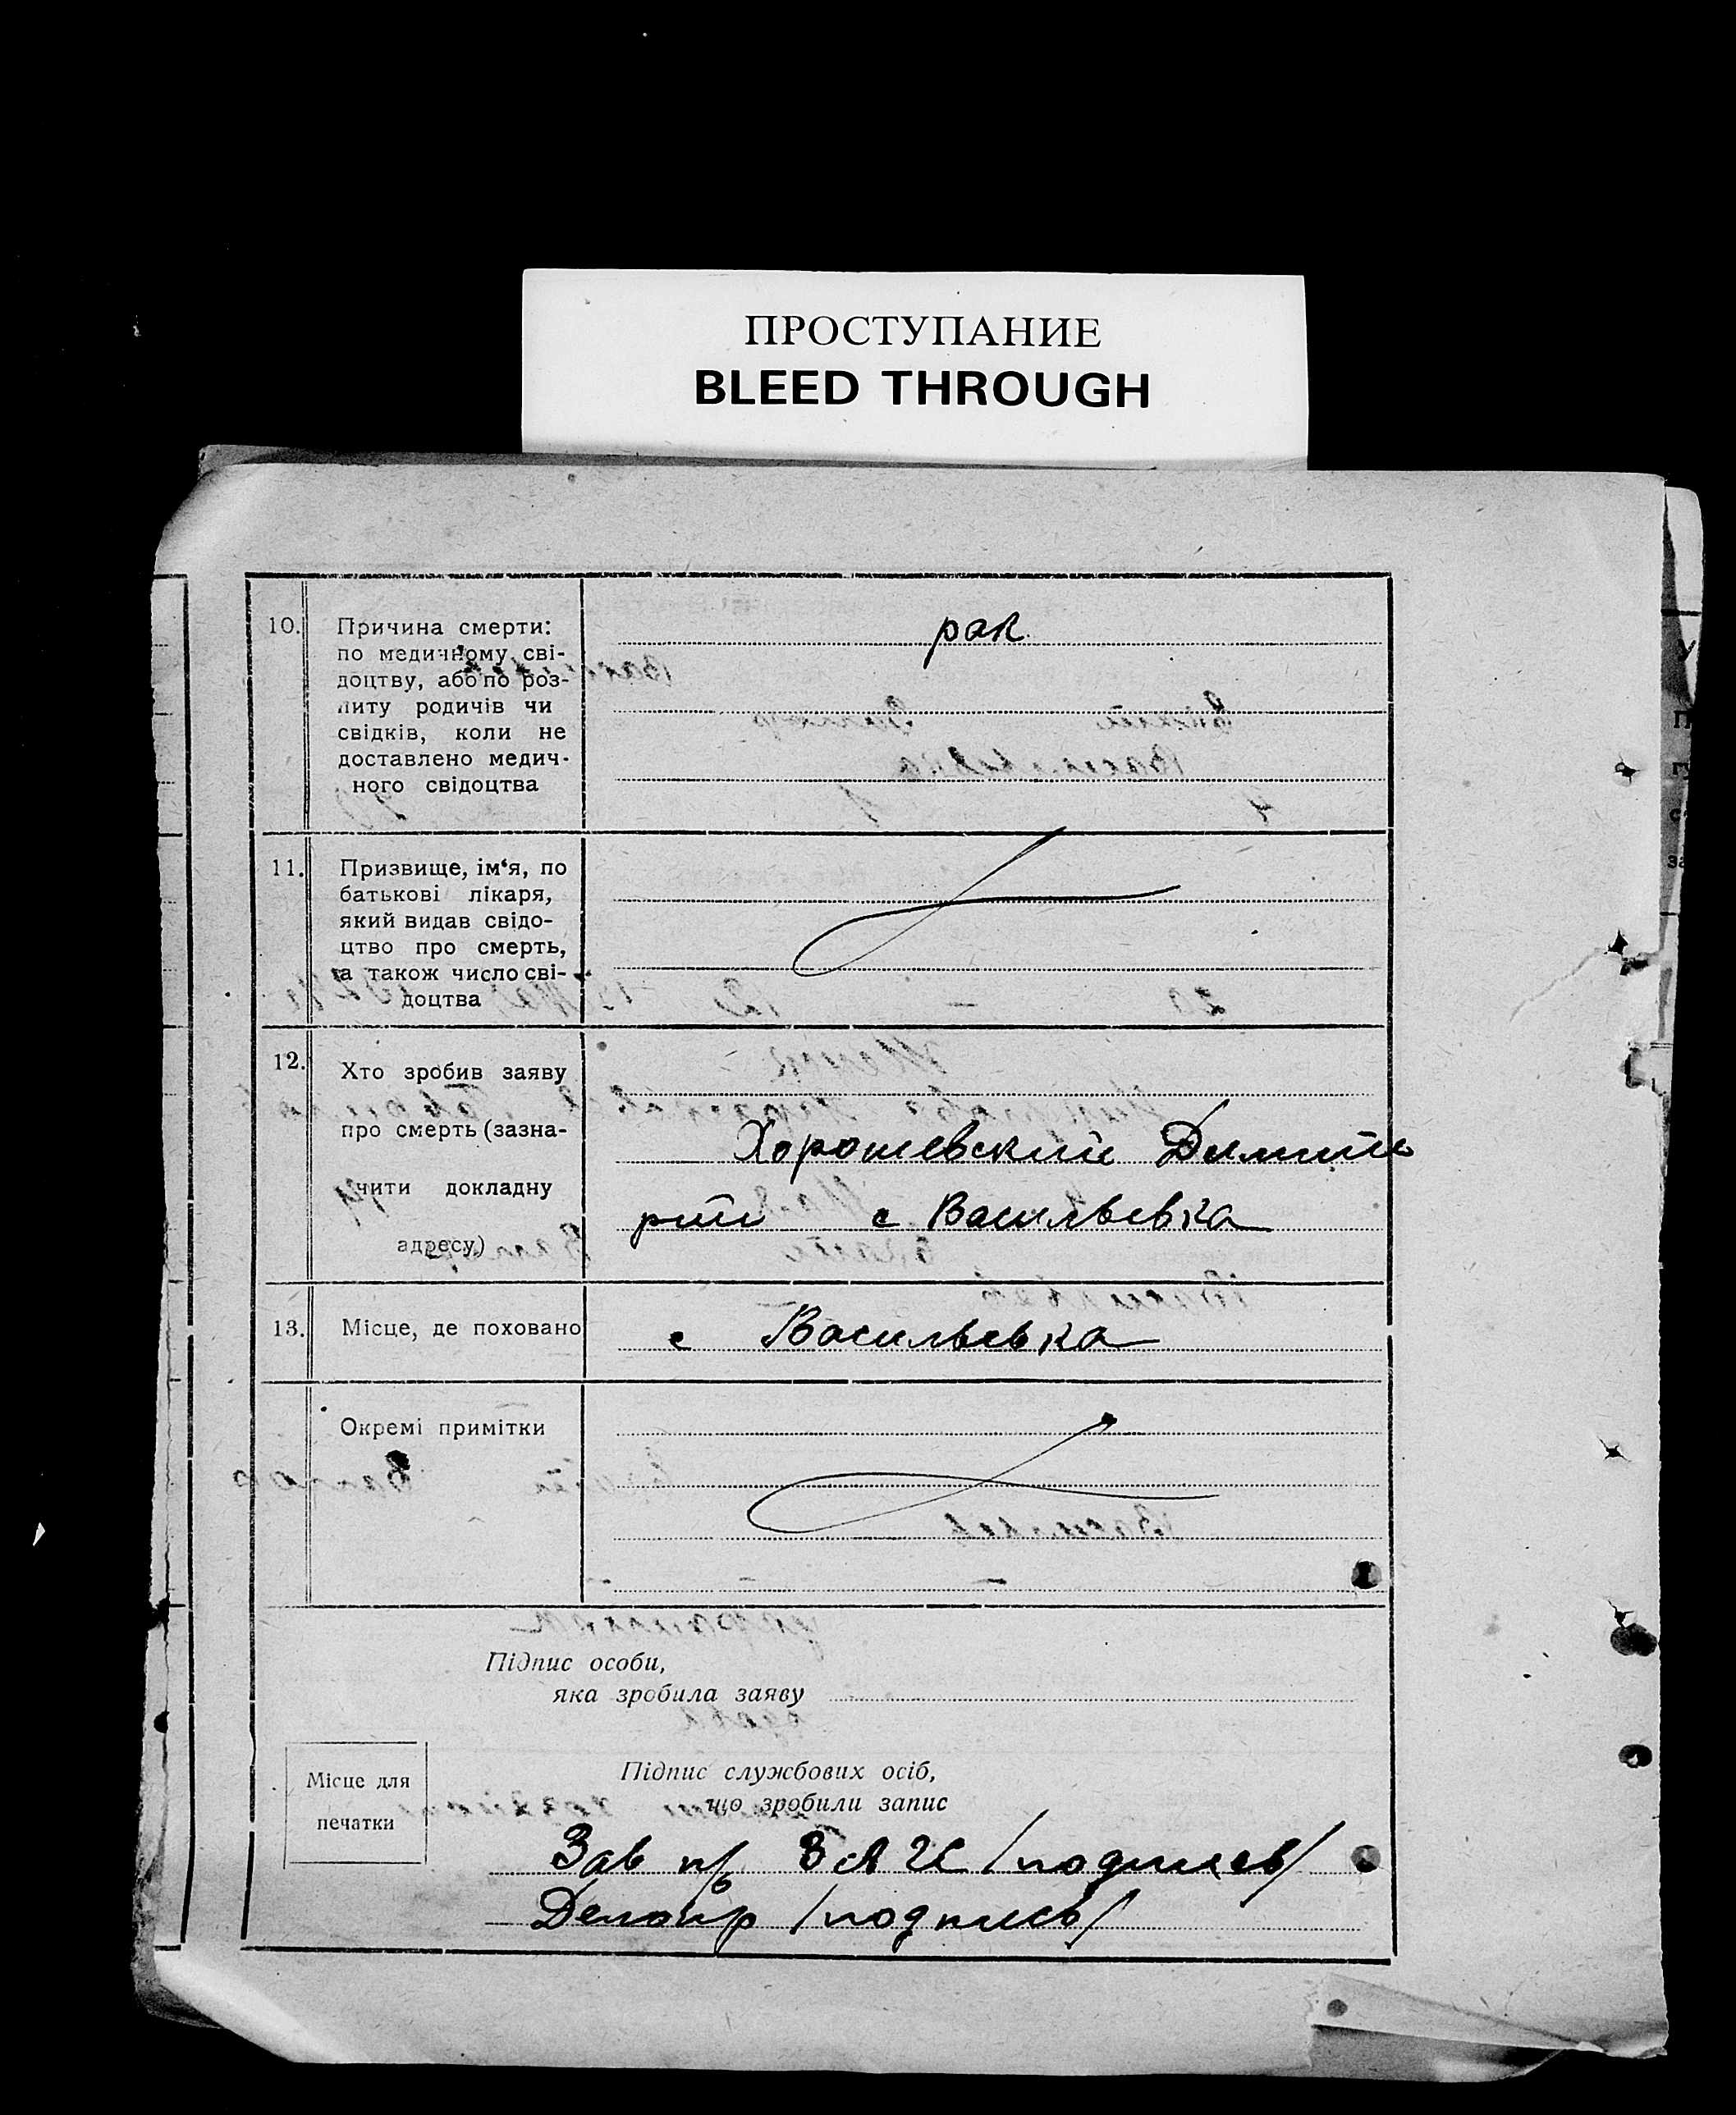 ПРОСТУПАНИЕ
BLEED THROUGH
10. Причина смерти:
по медичному сві-
доцтву, або по роз-
питу родичів чи
свідків, коли не
доставлено медич-
ного свідоцтва
рак
11. Призвище, ім‘я, по
батькові лікаря,
який видав свідо-
цтво про смерть,
а також число сві-
доцтва
12. Хто зробив заяву
про смерть (зазна-
чити докладну
адресу)
Хорошевский Димит
рий с Васильевка
13. Місце, де поховано
с Васильевка
Окремі примітки
Підпис особи,
яка зробила заяву
Місце для
печатки
Підпис службових осіб,
що зробили запис
Зав п/б ЗАГС /подпись/
Делопр /подпись/